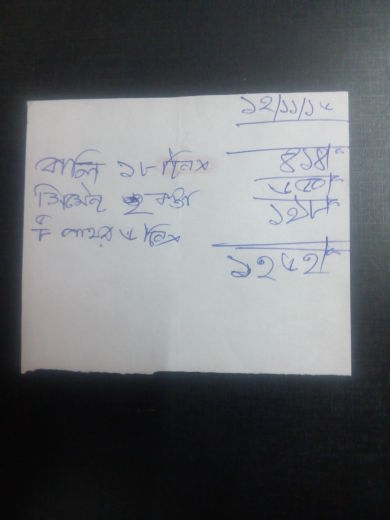 ১২/১১/১৫
বালি ১৮ টিন ৪১৪/-
সিমেন্ট ২ বস্তা ৭১০/-
পাথর ৫ টিন ১২৮/-
১২৫২/-